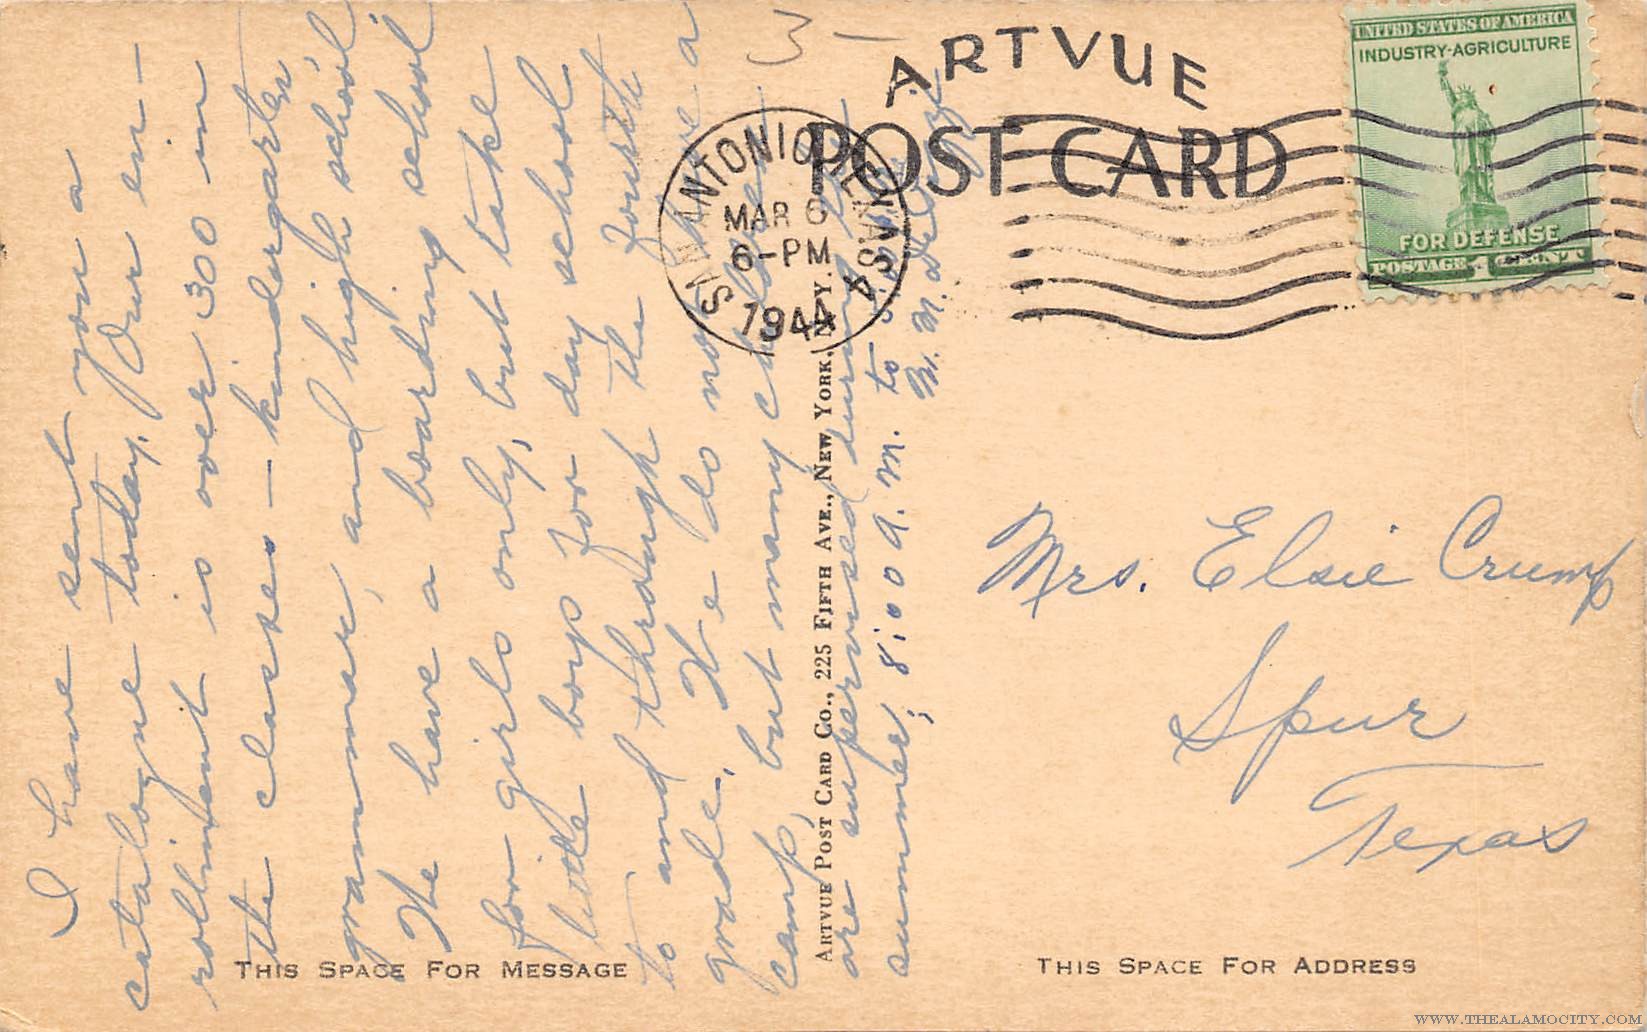 I have sent you a
catalogue today. Our en-
rollment is over 300 in
the classes - kindergarten,
grammar, and high school
We have a boarding school
for girls only, but take
little boys for day school
to and through the fourth
grade. We do not have a
camp, but many children
are supervised during the
summer; 8:00 a.m. to
ARTVUE
POST CARD
SAN ANTONIO, TEXAS
MAR 6
6-PM
1944
4
UNITED STATES OF AMERICA
INDUSTRY-AGRICULTURE
FOR DEFENSE
POSTAGE 1 CENT
ARTVUE POST CARD CO., 225 FIFTH AVE., NEW YORK, N. Y.
Mrs. Elsie Crump
Spur
Texas
THIS SPACE FOR MESSAGE
THIS SPACE FOR ADDRESS
WWW.THEALAMOCITY.COM